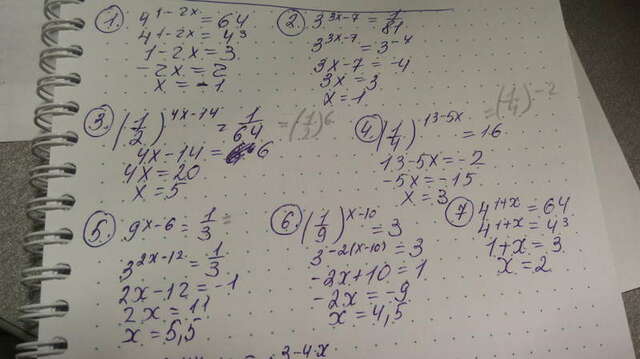 1. 4^(1-2x) = 64
4^(1-2x) = 4^3
1-2x = 3
-2x = 2
x = -1
2. 3^(3x-7) = 1/81
3^(3x-7) = 3^(-4)
3x-7 = -4
3x = 3
x = 1
3. (1/2)^(4x-14) = 1/64 = (1/2)^6
4x-14 = 6
4x = 20
x = 5
4 (1/4)^(13-5x) = 16 = (1/4)^(-2)
13-5x = -2
-5x = -15
x = 3
5. 9^(x-6) = 1/3 =
3^(2x-12) = 1/3
2x-12 = -1
2x = 11
x = 5,5
6. (1/9)^(x-10) = 3
3^(-2(x-10)) = 3
-2x+10 = 1
-2x = -9
x = 4,5
7 4^(1+x) = 64
4^(1+x) = 4^3
1+x = 3
x = 2